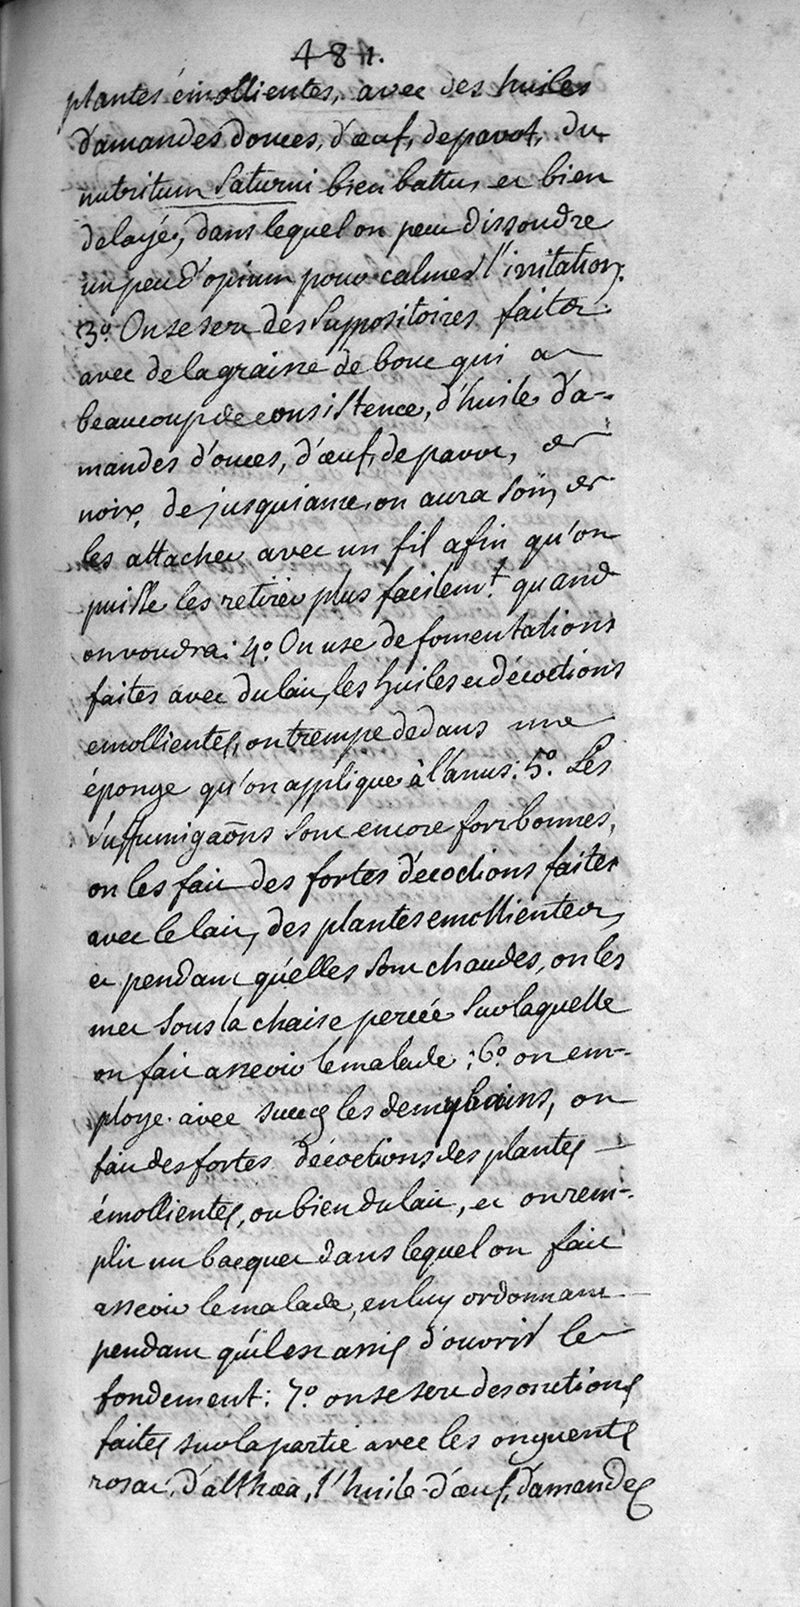 481.
plantes émollientes, avec des huiles
d'amandes douces, d'œuf, de pavot, du
nutritum Saturni bien battu, et bien
delayé, dans lequel on peut dissoudre
un peu d'opium pour calmer l'irritation.
3.º On se sert des Suppositoires faits
avec de la graisse de bouc qui a
beaucoup de consistence, d'huile d'a-
mandes d'ouces, d'œuf, de pavot, de
noix, de jusquiame, on aura soin, de
les attacher avec un fil afin qu'on
puisse les retirer plus facilemt. quand
on voudra: 4.º On use de fomentations
faites avec du lait, les huiles et décoctions
emollientes, on trempe dedans une
éponge qu'on applique à l'anus: 5.º Les
Suffumigaõns sont encore fort bonnes,
on les fait des fortes décoctions faites
avec le lait, des plantes emollientes,
et pendant qu'elles sont chaudes, on les
met sous la chaise percée sur laquelle
on fait asseoir le malade; 6.º on em-
ploye avec succes les demybains, on
fait des fortes décoctions des plantes
émollientes, ou bien du lait, et on rem-
plit un bacquet dans lequel on fait
asseoir le malade, en luy ordonnant
pendant qu'il est assis d'ouvrir le
fondement: 7.º on se sert des onctions
faites sur la partie avec les onguents
rosat, d'althœa, l'huile d'œuf, d'amandes